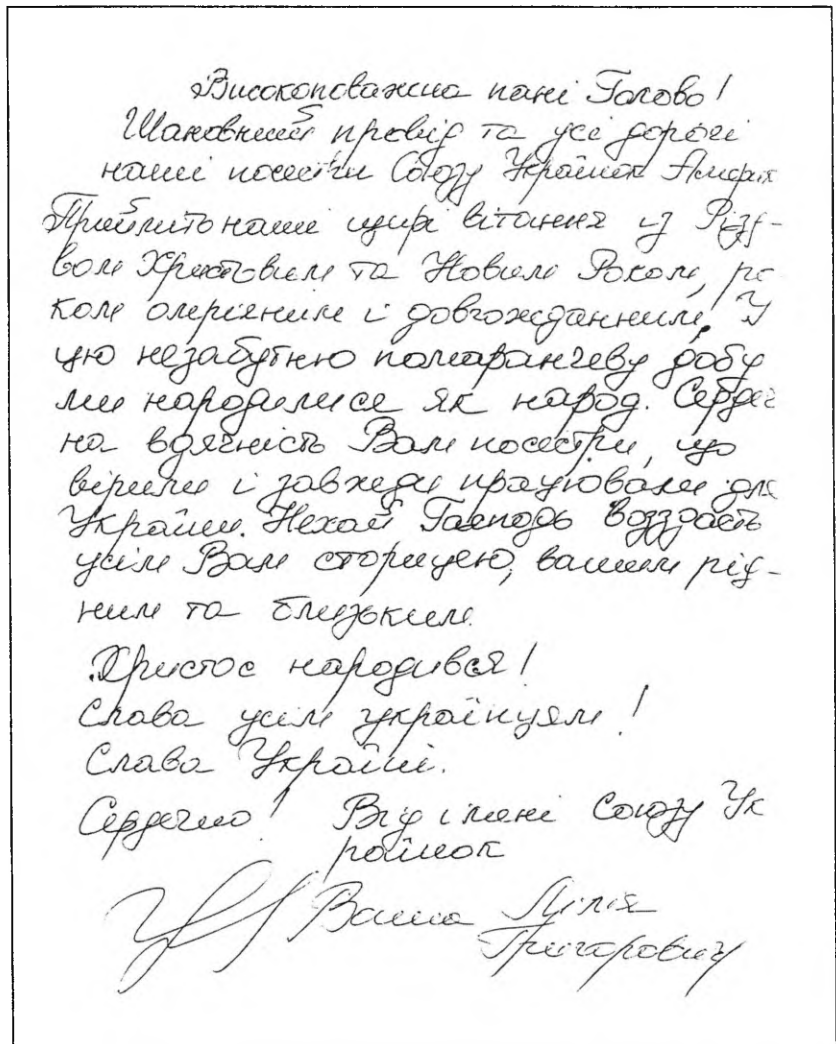 Високоповажна пані Голово!
Шановний провід та усі дорогі
наші посестри Союзу Українок Америк
Прийміть наші щирі вітання із Різд-
вом Христовим та Новим Роком, ро
ком омріяним і довгожданним. У
цю незабутню помаранчеву добу
ми народилися як народ. Сердеч
на вдячність Вам посестри, що
вірили і завжди працювали для
України. Нехай Господь воздасть
усім Вам сторицею, вашим рід-
ним та близьким.
Христос народився!
Слава усім українцям!
Слава Україні.
Сердечно! Від імені Союзу Ук
раїнок
Ваша Лілія
Григорович